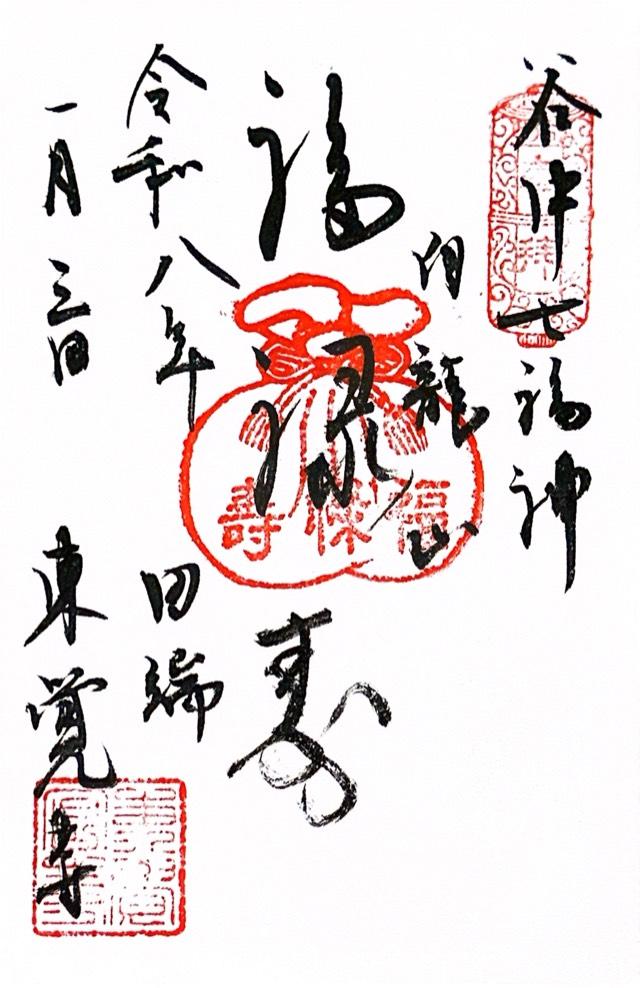 谷中七福神
白龍山
福禄寿
福禄壽
令和八年
田端
一月三日
東覚寺